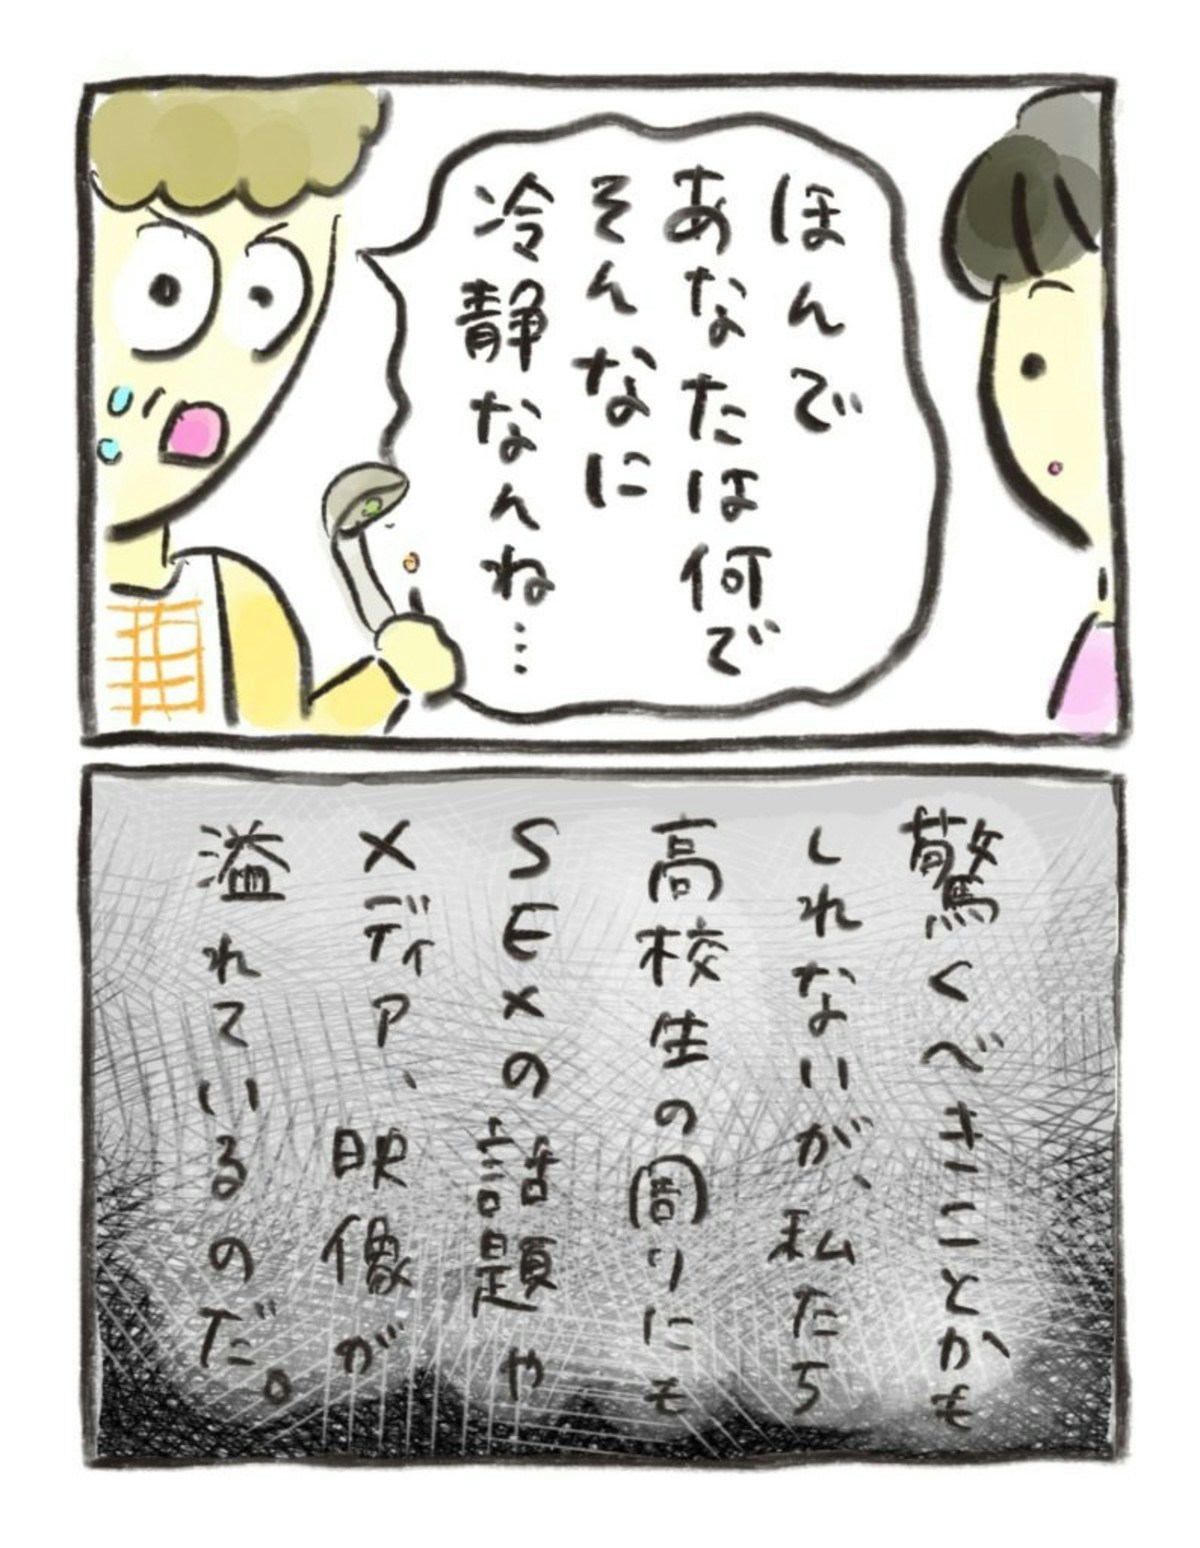 ほんで
あなたは何で
そんなに
冷静なんね…
驚くべきことかも
しれないが、私たち
高校生の周りにも
SEXの話題や
メディア、映像が
溢れているのだ。